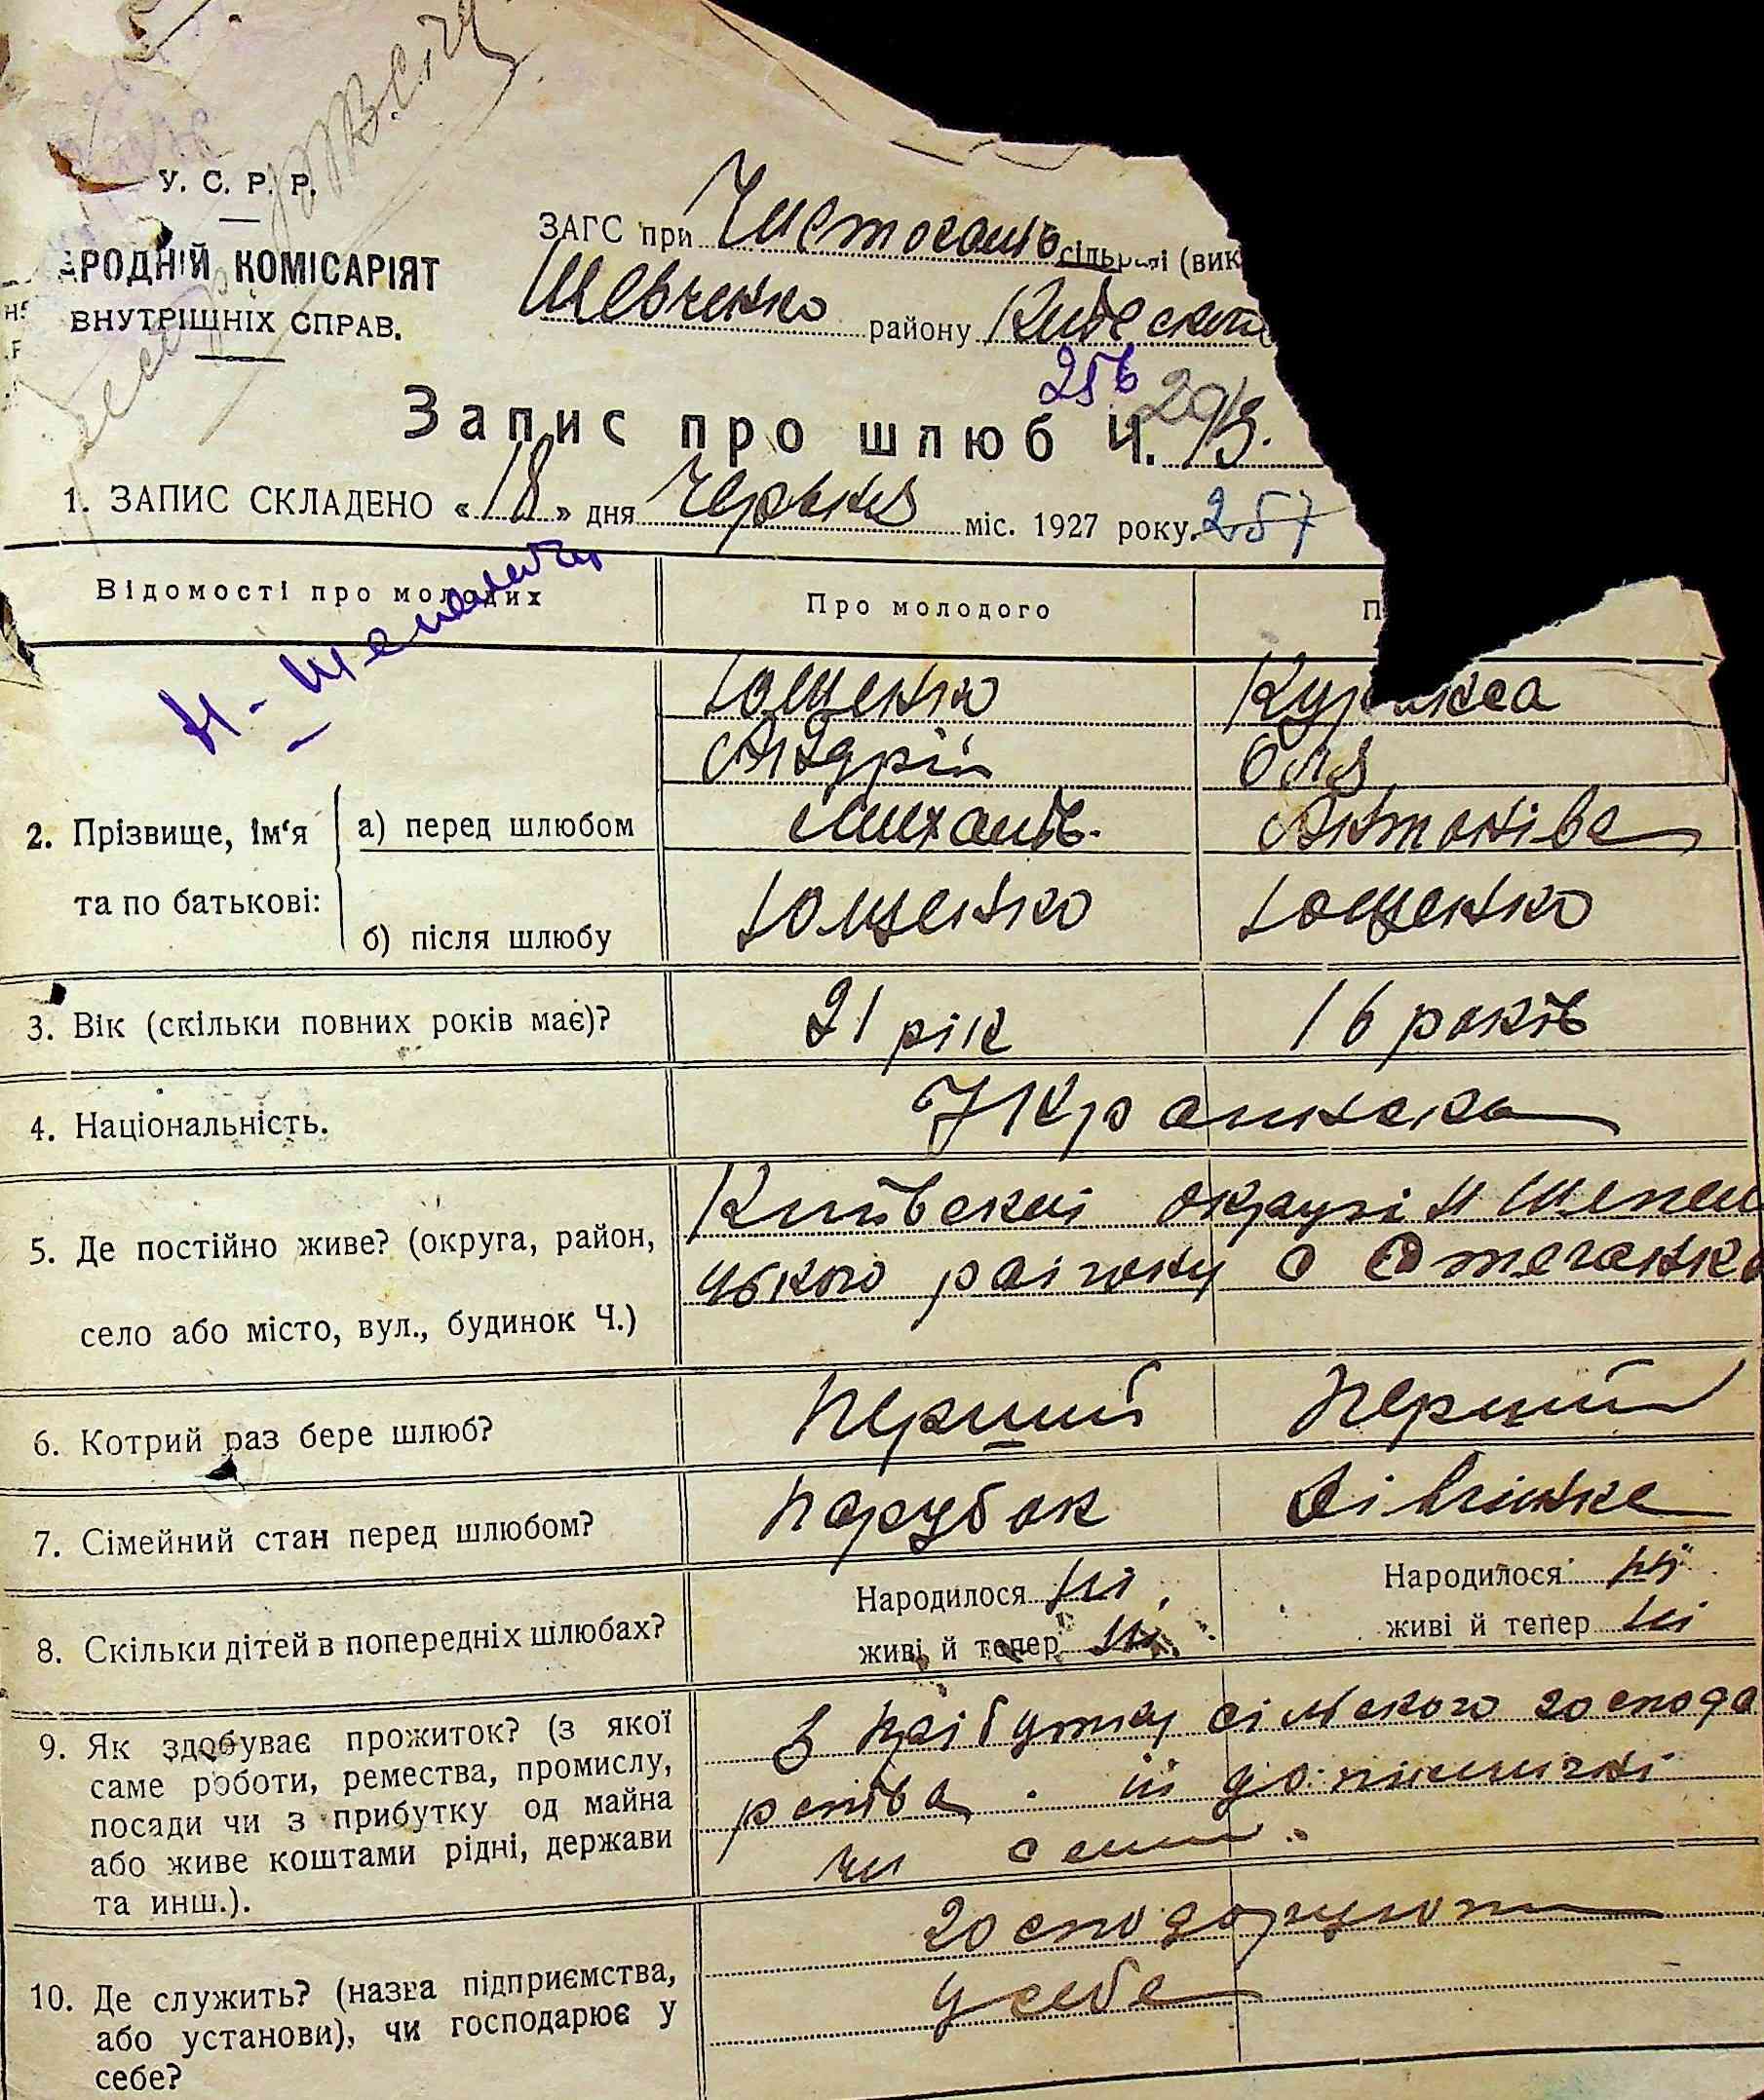 У. С. Р. Р.
АРОДНІЙ КОМІСАРІЯТ
ВНУТРІШНІХ СПРАВ.
ЗАГС при сільраді (вик
Шевченко району
256
Запис про шлюб Ч.
1. ЗАПИС СКЛАДЕНО «18» дня Червня міс. 1927 року. 257
Відомості про молодих
Про молодого
П
Ющенко
Андрій Оля
2. Прізвище, ім'я та по батькові:
а) перед шлюбом
Михайлів. Антонівна
б) після шлюбу
Ющенко Ющенко
3. Вік (скільки повних років має)?
21 рік 16 років
4. Національність.
Українська
5. Де постійно живе? (округа, район,
село або місто, вул., будинок Ч.)
Київської округи
цького району с
6. Котрий раз бере шлюб?
Перший Перший
7. Сімейний стан перед шлюбом?
Парубок Дівчинка
8. Скільки дітей в попередніх шлюбах?
Народилося ні Народилося ні
живі й тепер ні живі й тепер ні
9. Як здобуває прожиток? (з якої
саме роботи, ремества, промислу,
посади чи з прибутку од майна
або живе коштами рідні, держави
та инш.).
З прібутку сільского господа
рства
10. Де служить? (назва підприємства,
або установи), чи господарює у
себе?
господарують
у себе